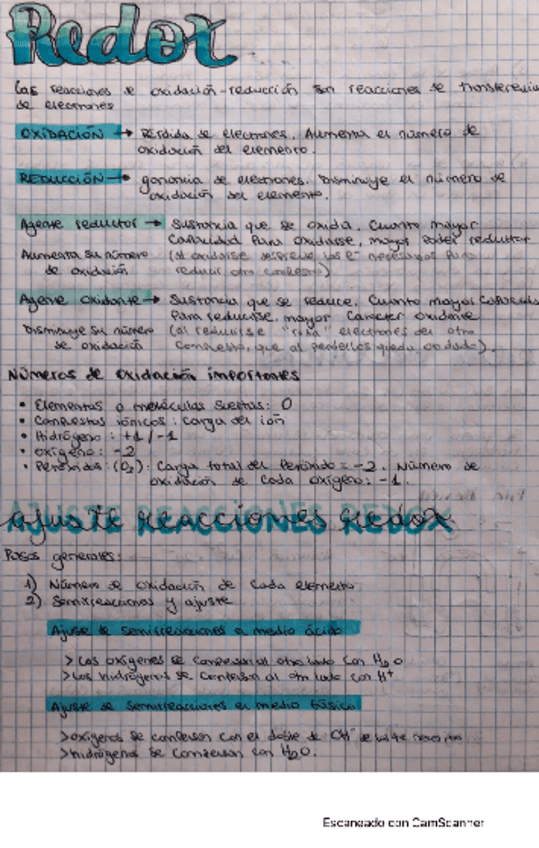 Redox
Las reacciones de oxidación-reducción son reacciones de transferencia
de electrones
OXIDACIÓN → Pérdida de electrones. Aumenta el número de
oxidación del elemento.
REDUCCIÓN → ganancia de electrones. Disminuye el número de
oxidación del elemento.
Agente reductor → Sustancia que se oxida. Cuanto mayor
capacidad para oxidarse, mayor poder reductor
Aumenta su número (al oxidarse desprende los e⁻ necesarios para
de oxidación reducir otro compuesto)
Agente oxidante → Sustancia que se reduce. Cuanto mayor capacidad
para reducirse, mayor carácter oxidante
Disminuye su número (al reducirse "roba" electrones del otro
de oxidación compuesto, que al perderlos queda oxidado).
Números de oxidación importantes
• Elementos o moléculas sueltas: 0
• Compuestos iónicos: carga del ión
• Hidrógeno: +1/-1
• oxígeno: -2
• Peróxidos: (O₂): Carga total del peróxido = -2. Número de
oxidación de cada oxígeno: -1.
AJUSTE REACCIONES REDOX
Pasos generales:
1) Número de oxidación de cada elemento
2) Semirreacciones y ajuste
Ajuste de semirreacciones en medio ácido
> Los oxígenos se compensan al otro lado con H₂O
> Los hidrógenos se compensan al otro lado con H⁺
Ajuste de semirreacciones en medio básico
> oxígenos se compensan con el doble de OH⁻ de los
> hidrógenos se compensan con H₂O.
Escaneado con CamScanner